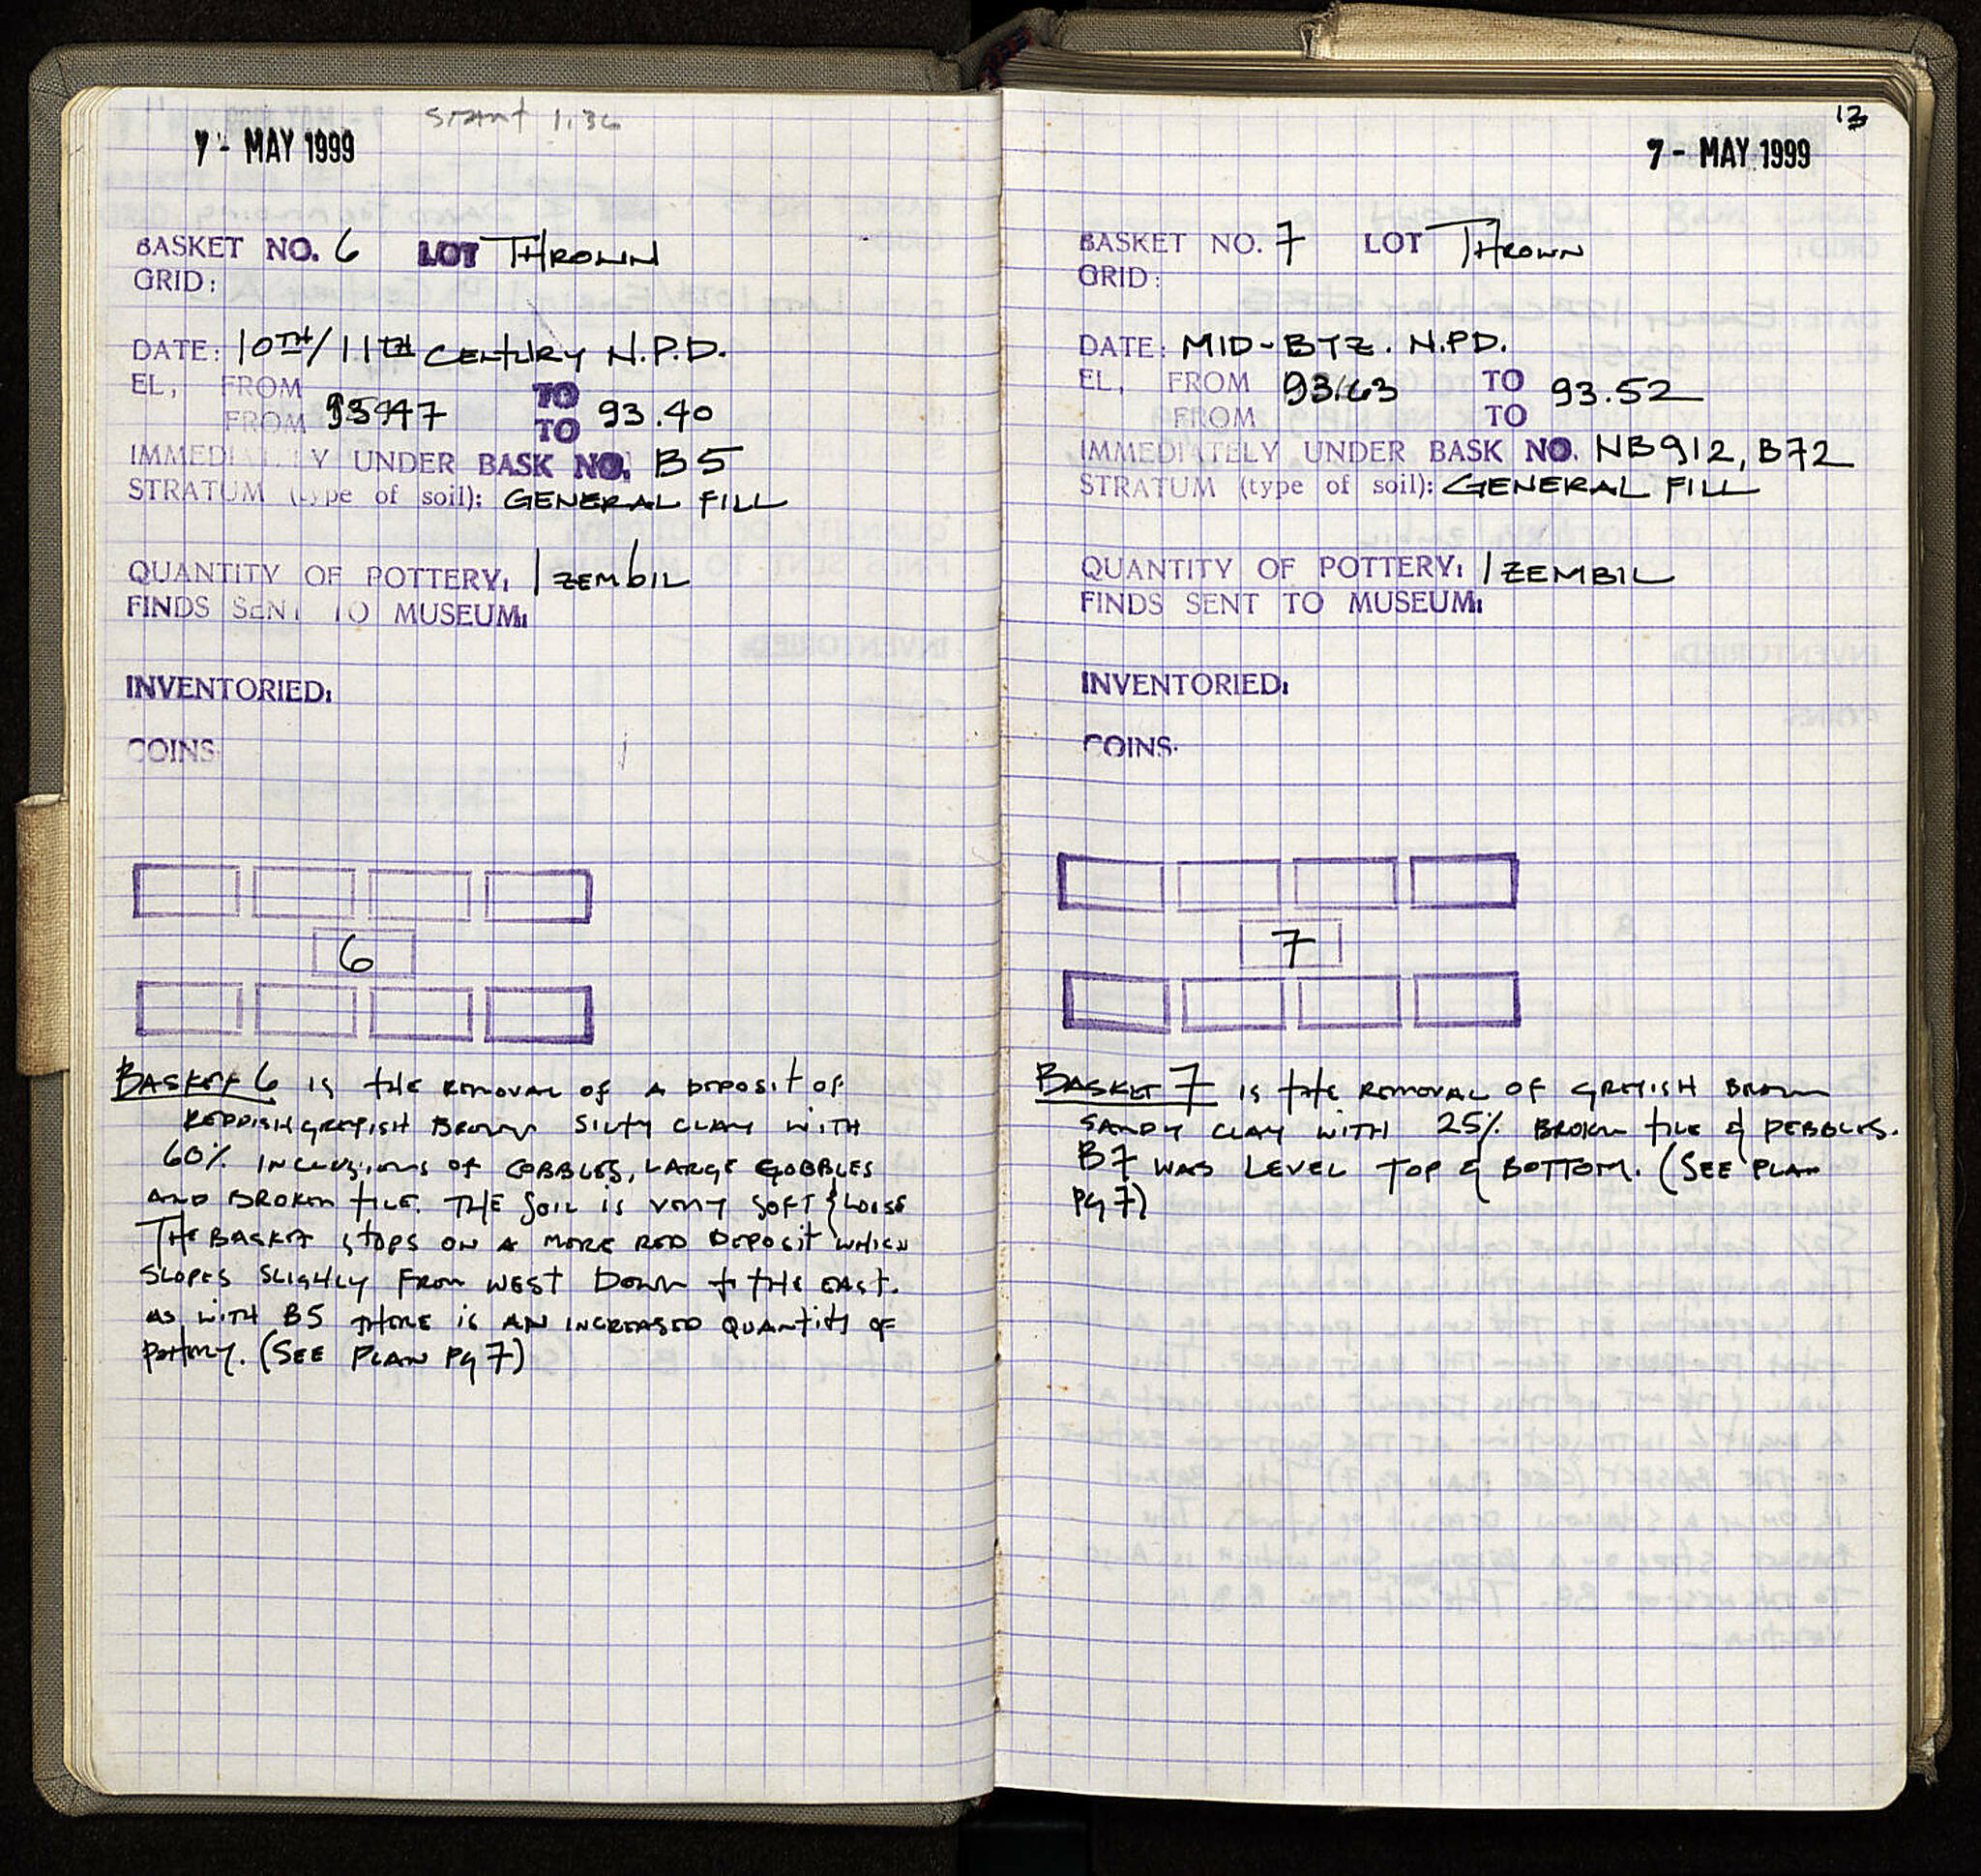 START 1:36
7 - MAY 1999
BASKET NO. 6 LOT THROWN
GRID:
DATE: 10TH/11TH CENTURY N.P.D.
EL, FROM TO
FROM 93.47 TO 93.40
IMMEDIATELY UNDER BASK NO. B5
STRATUM (type of soil): GENERAL FILL
QUANTITY OF POTTERY: 1 ZEMBIL
FINDS SENT TO MUSEUM:
INVENTORIED:
COINS
6
BASKET 6 IS THE REMOVAL OF A DEPOSIT OF
REDDISH GREYISH BROWN SILTY CLAY WITH
60% INCLUSIONS OF COBBLES, LARGE COBBLES
AND BROKEN TILE. THE SOIL IS VERY SOFT & LOOSE
THE BASKET STOPS ON A MORE RED DEPOSIT WHICH
SLOPES SLIGHLY FROM WEST DOWN TO THE EAST.
AS WITH B5 THERE IS AN INCREASED QUANTITY OF
POTTERY. (SEE PLAN PG 7)
13
7 - MAY 1999
BASKET NO. 7 LOT THROWN
GRID:
DATE: MID-BYZ. N.PD.
EL, FROM 93.63 TO 93.52
FROM TO
IMMEDIATELY UNDER BASK NO. NB912, B72
STRATUM (type of soil): GENERAL FILL
QUANTITY OF POTTERY: 1 ZEMBIL
FINDS SENT TO MUSEUM:
INVENTORIED:
COINS
7
BASKET 7 IS THE REMOVAL OF GREYISH BROWN
SANDY CLAY WITH 25% BROKEN TILE & PEBBLES.
B7 WAS LEVEL TOP & BOTTOM. (SEE PLAN
PG 7)